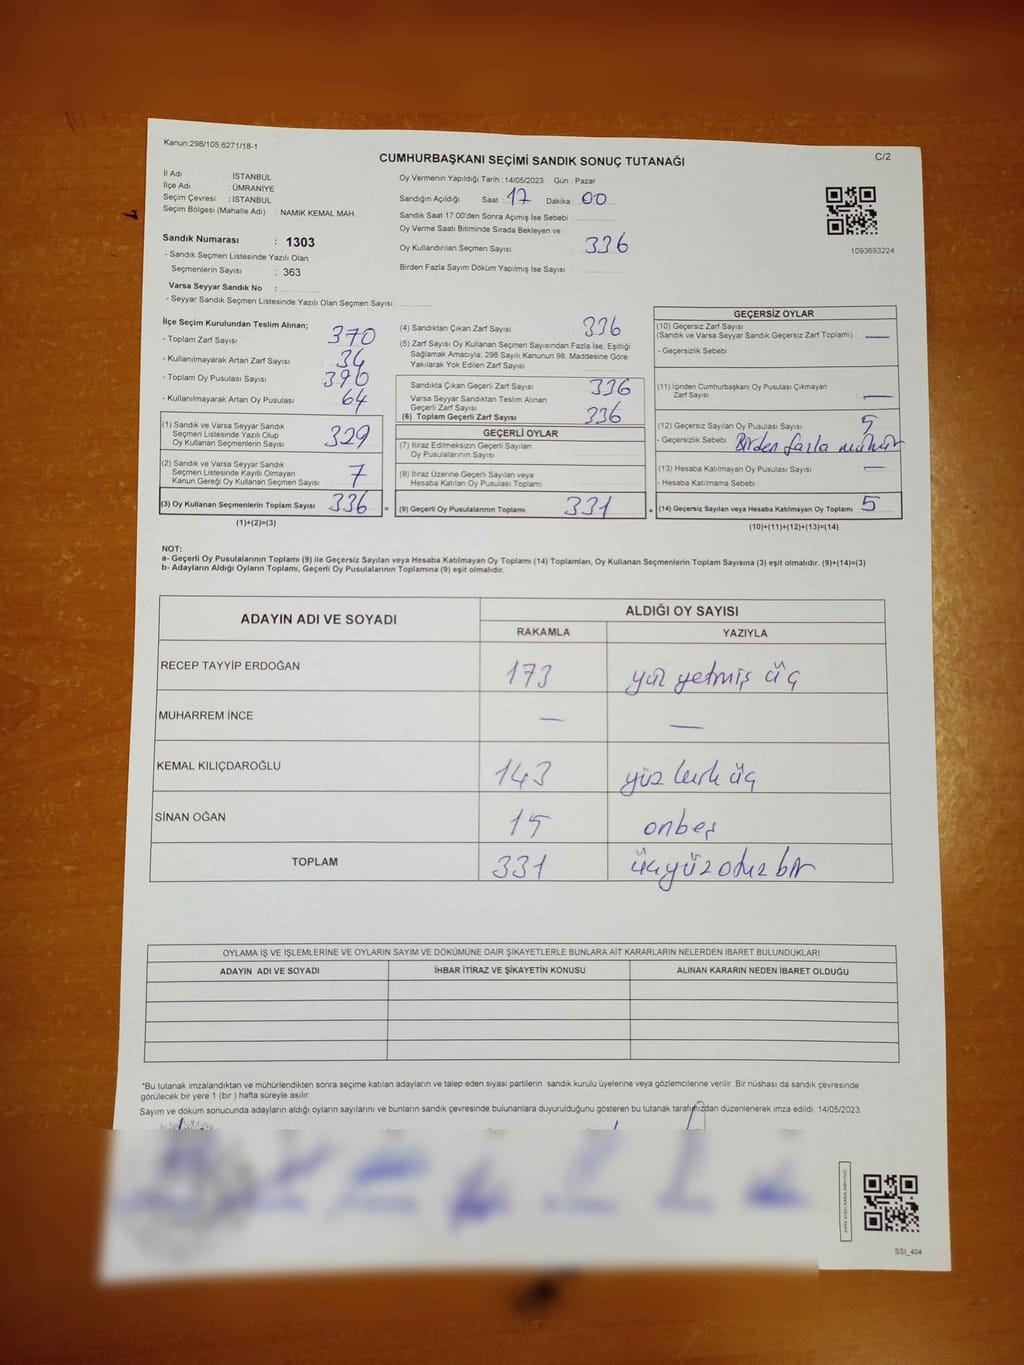 Kanun:298/105,6271/18-1
C/2
CUMHURBAŞKANI SEÇİMİ SANDIK SONUÇ TUTANAĞI
İl Adı : İSTANBUL
İlçe Adı : ÜMRANİYE
Seçim Çevresi : İSTANBUL
Seçim Bölgesi (Mahalle Adı) : NAMIK KEMAL MAH.
Sandık Numarası : 1303
- Sandık Seçmen Listesinde Yazılı Olan
Seçmenlerin Sayısı : 363
Varsa Seyyar Sandık No :
- Seyyar Sandık Seçmen Listesinde Yazılı Olan Seçmen Sayısı:
Oy Vermenin Yapıldığı Tarih :14/05/2023 Gün : Pazar
Sandığın Açıldığı Saat : 17 Dakika : 00
Sandık Saat 17:00'den Sonra Açımış İse Sebebi :
Oy Verme Saati Bitiminde Sırada Bekleyen ve
Oy Kullandırılan Seçmen Sayısı : 336
Birden Fazla Sayım Döküm Yapılmış İse Sayısı :
1093693224
İlçe Seçim Kurulundan Teslim Alınan;
- Toplam Zarf Sayısı : 370
- Kullanılmayarak Artan Zarf Sayısı : 34
- Toplam Oy Pusulası Sayısı : 390
- Kullanılmayarak Artan Oy Pusulası : 64
(1) Sandık ve Varsa Seyyar Sandık
Seçmen Listesinde Yazılı Olup
Oy Kullanan Seçmenlerin Sayısı 329
(2) Sandık ve Varsa Seyyar Sandık
Seçmen Listesinde Kayıtlı Olmayan
Kanun Gereği Oy Kullanan Seçmen Sayısı 7
(3) Oy Kullanan Seçmenlerin Toplam Sayısı 336 =
(1)+(2)=(3)
(4) Sandıktan Çıkan Zarf Sayısı : 336
(5) Zarf Sayısı Oy Kullanan Seçmen Sayısından Fazla İse, Eşitliği
Sağlamak Amacıyla; 298 Sayılı Kanunun 98. Maddesine Göre
Yakılarak Yok Edilen Zarf Sayısı
Sandıkta Çıkan Geçerli Zarf Sayısı 336
Varsa Seyyar Sandıktan Teslim Alınan
Geçerli Zarf Sayısı :
(6) Toplam Geçerli Zarf Sayısı 336
GEÇERLİ OYLAR
(7) İtiraz Edilmeksizin Geçerli Sayılan
Oy Pusulalarının Sayısı
(8) İtiraz Üzerine Geçerli Sayılan veya
Hesaba Katılan Oy Pusulası Toplamı
(9) Geçerli Oy Pusulalarının Toplamı 331 +
GEÇERSİZ OYLAR
(10) Geçersiz Zarf Sayısı
(Sandık ve Varsa Seyyar Sandık Geçersiz Zarf Toplamı) —
- Geçersizlik Sebebi
(11) İçinden Cumhurbaşkanı Oy Pusulası Çıkmayan
Zarf Sayısı —
(12) Geçersiz Sayılan Oy Pusulası Sayısı 5
- Geçersizlik Sebebi Birden fazla mühür
(13) Hesaba Katılmayan Oy Pusulası Sayısı —
- Hesaba Katılmama Sebebi
(14) Geçersiz Sayılan veya Hesaba Katılmayan Oy Toplamı 5
(10)+(11)+(12)+(13)=(14)
NOT:
a- Geçerli Oy Pusulalarının Toplamı (9) ile Geçersiz Sayılan veya Hesaba Katılmayan Oy Toplamı (14) Toplamları, Oy Kullanan Seçmenlerin Toplam Sayısına (3) eşit olmalıdır. (9)+(14)=(3)
b- Adayların Aldığı Oyların Toplamı, Geçerli Oy Pusulalarının Toplamına (9) eşit olmalıdır.
ADAYIN ADI VE SOYADI
ALDIĞI OY SAYISI
RAKAMLA YAZIYLA
RECEP TAYYİP ERDOĞAN 173 yüz yetmiş üç
MUHARREM İNCE — —
KEMAL KILIÇDAROĞLU 143 yüz kırk üç
SİNAN OĞAN 15 onbeş
TOPLAM 331 üçyüz otuz bir
OYLAMA İŞ VE İŞLEMLERİNE VE OYLARIN SAYIM VE DÖKÜMÜNE DAİR ŞİKAYETLERLE BUNLARA AİT KARARLARIN NELERDEN İBARET BULUNDUKLARI
ADAYIN ADI VE SOYADI İHBAR İTİRAZ VE ŞİKAYETİN KONUSU ALINAN KARARIN NEDEN İBARET OLDUĞU
*Bu tutanak imzalandıktan ve mühürlendikten sonra seçime katılan adayların ve talep eden siyasi partilerin sandık kurulu üyelerine veya gözlemcilerine verilir. Bir nüshası da sandık çevresinde
görülecek bir yere 1 (bir ) hafta süreyle asılır.
Sayım ve döküm sonucunda adayların aldığı oyların sayılarını ve bunların sandık çevresinde bulunanlara duyurulduğunu gösteren bu tutanak tarafımızdan düzenlenerek imza edildi. 14/05/2023
SSI_404